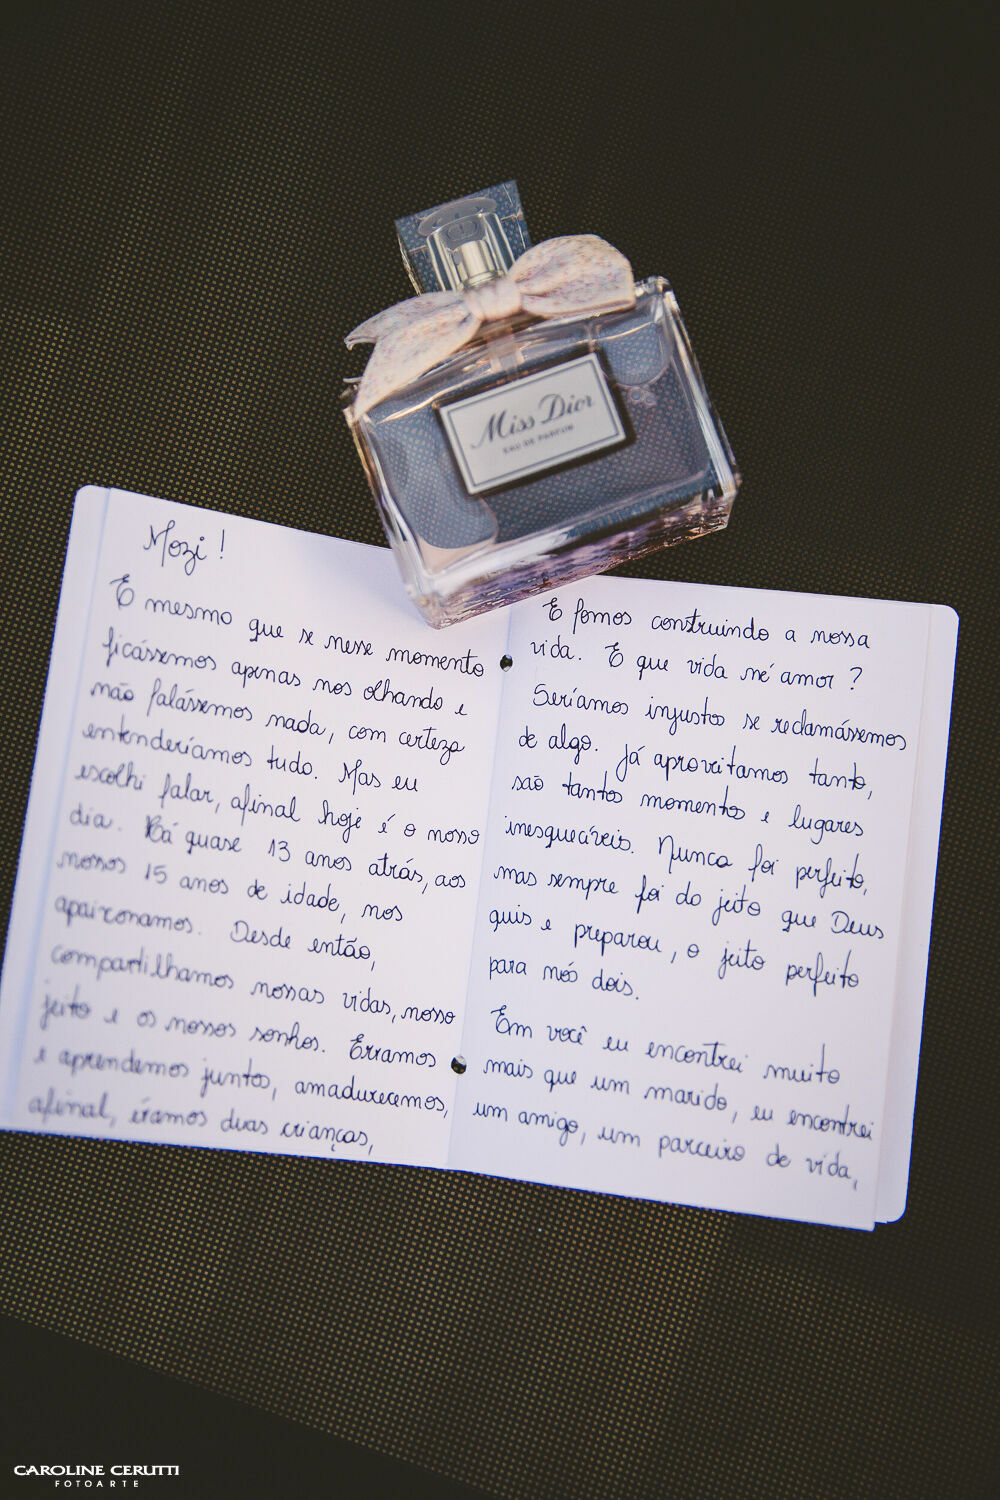 Miss Dior
EAU DE PARFUM
Mozi!
E mesmo que se nesse momento
ficássemos apenas nos olhando e
não falássemos nada, com certeza
entenderíamos tudo. Mas eu
escolhi falar, afinal hoje é o nosso
dia. Há quase 13 anos atrás, aos
nossos 15 anos de idade, nos
apaixonamos. Desde então,
compartilhamos nossas vidas, nosso
jeito e os nossos sonhos. Erramos
e aprendemos juntos, amadurecemos,
afinal, éramos duas crianças,
E fomos construindo a nossa
vida. E que vida né amor?
Seríamos injustos se reclamássemos
de algo. Já aproveitamos tanto,
são tantos momentos e lugares
inesquecíveis. Nunca foi perfeito,
mas sempre foi do jeito que Deus
quis e preparou, o jeito perfeito
para nós dois.
Em você eu encontrei muito
mais que um marido, eu encontrei
um amigo, um parceiro de vida,
CAROLINE CERUTTI
FOTOARTE